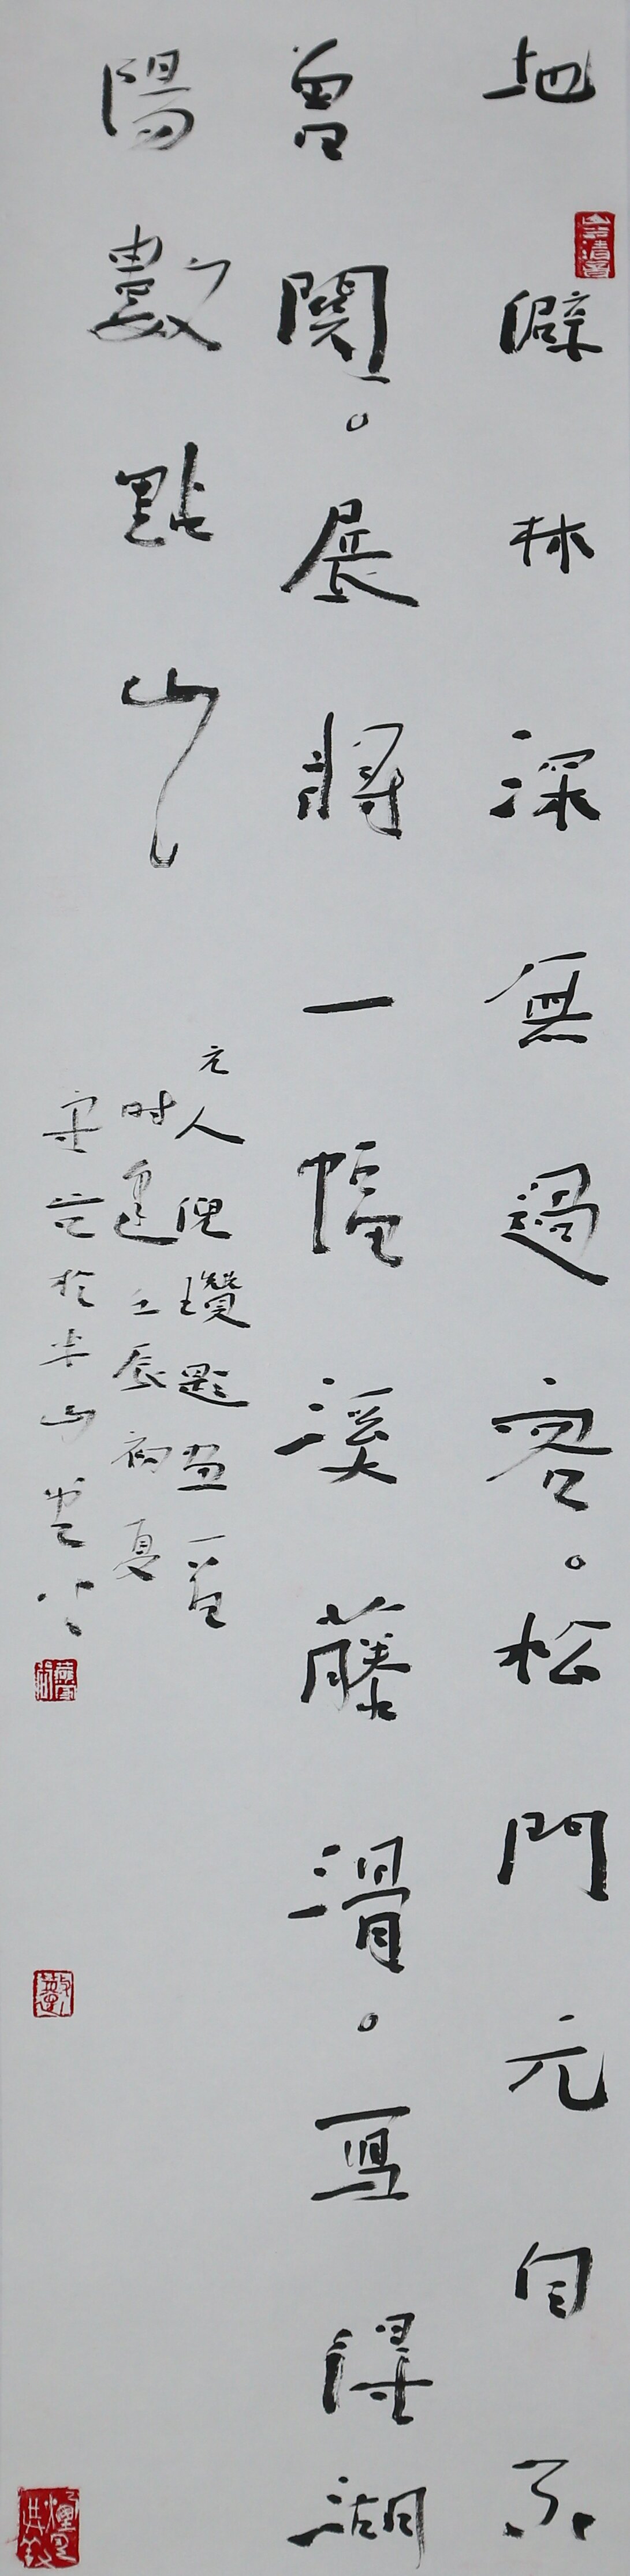 地僻林深無過客。松門元自不
曾関。展將一幅溪藤滑。寫得湖
陽數點山
元人倪瓚題画一首
时建壬辰初夏
守于於半山堂